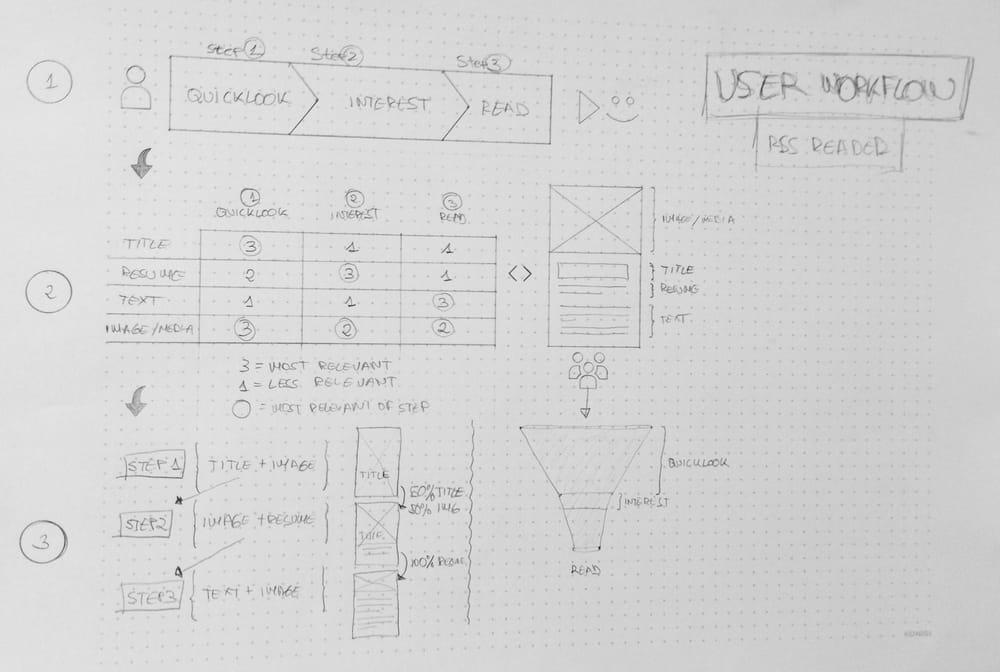 USER WORKFLOW
RSS READER
1
Step 1
Step 2
Step 3
QUICKLOOK
INTEREST
READ
2
1
2
3
QUICKLOOK
INTEREST
READ
TITLE 3 1 1
RESUME 2 3 1
TEXT 1 1 3
IMAGE/MEDIA 3 2 2
3 = MOST RELEVANT
1 = LESS RELEVANT
= MOST RELEVANT OF STEP
<>
IMAGE/MEDIA
TITLE
RESUME
TEXT
3
STEP 1 { TITLE + IMAGE }
STEP 2 { IMAGE + RESUME }
STEP 3 { TEXT + IMAGE }
TITLE
50% TITLE
50% IMG
TITLE
100% RESUME
QUICKLOOK
INTEREST
READ